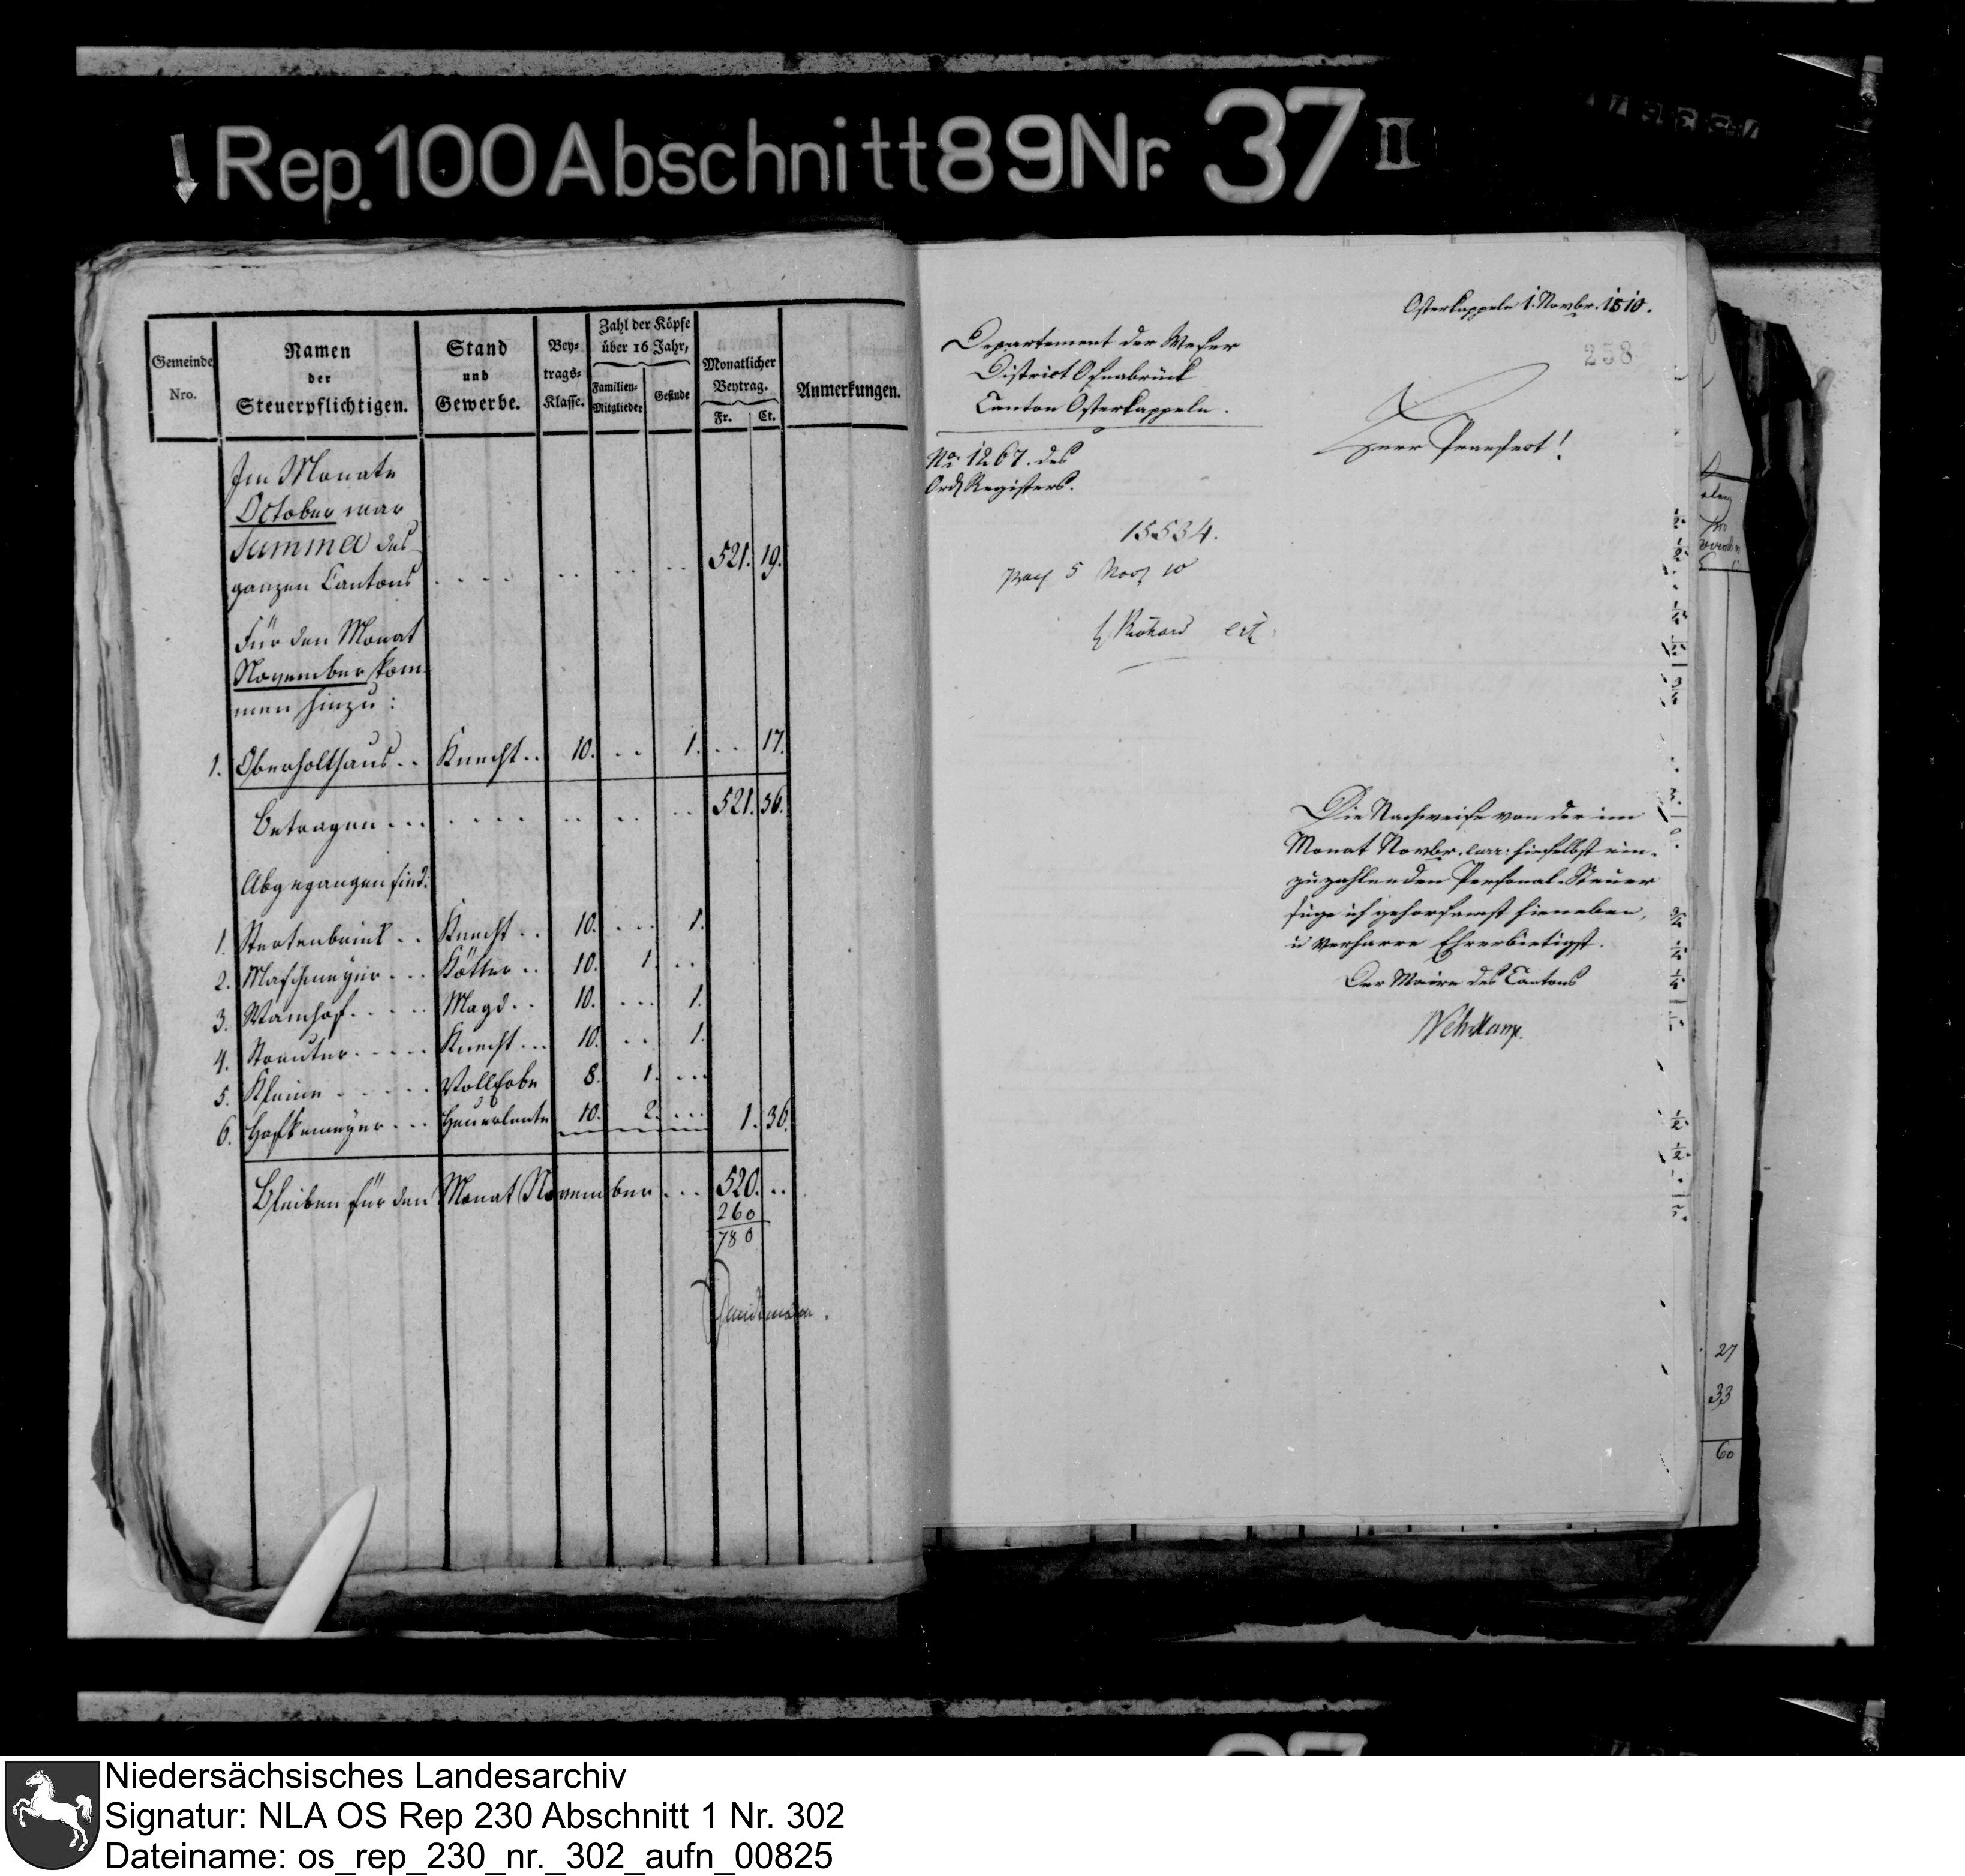 Rep. 100 Abschnitt 89 Nr. 37 II
Gemeinde Nro.
Namen der Steuerpflichtigen.
Stand und Gewerbe.
Bey-trags-Klasse.
Zahl der Köpfe über 16 Jahr,
Familien-Mitglieder
Gesinde
Monatlicher Beytrag.
Fr. Ct.
Anmerkungen.
Im Monate
October war
Summa des
ganzen Cantons .... .. .. .. 521. 19.
Für den Monat
November kom-
men hinzu:
1. Oberholthaus .. Knecht .. 10. .. 1. .. 17.
Betragen ... .... .. .. .. 521. 36.
Abgegangen sind:
1. Stertenbrink .. Knecht .. 10. ... 1.
2. Maschmeyer ... Kötter .. 10. 1. ..
3. Wamhof ..... Magd .. 10. ... 1.
4. Knecht ... 10. .. 1.
5. Kleine ..... Vollerbe 8. 1. ...
6. Heuerleute 10. 2. ... 1. 36.
Bleiben für den Monat November ... 520. ..
260
780
Osterkappeln 1. Novbr. 1810.
258
Departement der Weser
District Osnabrück
Canton Osterkappeln.
No. 1267. des
Ord. Registers.
Herr Praefect!
15534.
5 Nov 10
Die Nachweise von der im
Monat Novbr. curr: hieselbst ein-
zuzahlenden Personal-Steuer
füge ich gehorsamst hieneben,
u verharre Ehrerbietigst.
Der Maire des Cantons
27
33
60
Niedersächsisches Landesarchiv
Signatur: NLA OS Rep 230 Abschnitt 1 Nr. 302
Dateiname: os_rep_230_nr._302_aufn_00825